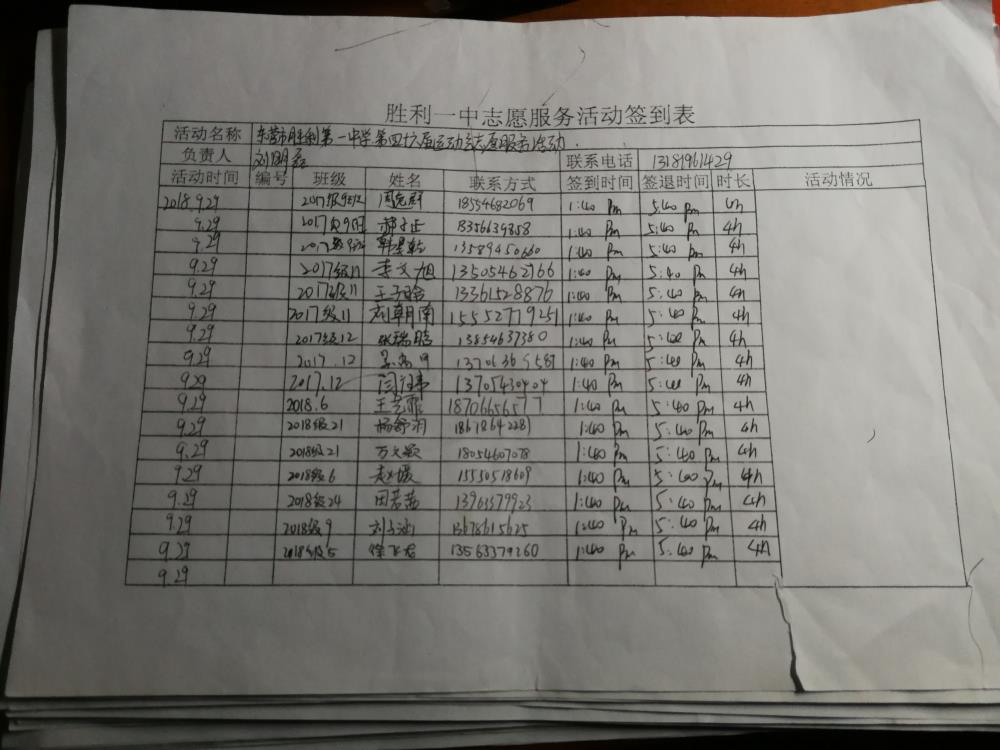 胜利一中志愿服务活动签到表
活动名称 东营市胜利第一中学第四十六届运动会志愿服务活动
负责人 刘明磊 联系电话 13181961429
活动时间 编号 班级 姓名 联系方式 签到时间 签退时间 时长 活动情况
2018.9.29 2017级 18554682069 1:40 Pm 5:40 Pm 4h
9.29 2017级 1:40 Pm 5:40 Pm 4h
9.29 13589450660 1:40 Pm 5:40 Pm 4h
9.29 2017级11 李文旭 13505462766 1:40 Pm 5:40 Pm 4h
9.29 2017级11 王子晗 13361528876 1:40 Pm 5:40 Pm 4h
9.29 2017级11 刘朝南 15552771925 1:40 Pm 5:40 Pm 4h
9.29 2017级12 张瑞鹏 13854637380 1:40 Pm 5:40 Pm 4h
9.29 2017.12 1:40 Pm 5:40 Pm 4h
9.29 2017.12 13705430404 1:40 Pm 5:40 Pm 4h
9.29 2018.6 王艺霏 18706656577 1:40 Pm 5:40 Pm 4h
9.29 2018级21 杨舒羽 18618642281 1:40 Pm 5:40 Pm 4h
9.29 2018级21 万文颖 18054607078 1:40 Pm 5:40 Pm 4h
9.29 2018级6 赵媛 15550518609 1:40 Pm 5:40 Pm 4h
9.29 2018级24 田若茜 13963379923 1:40 Pm 5:40 Pm 4h
9.29 2018级9 刘子涵 13678615625 1:40 Pm 5:40 Pm 4h
9.29 2018级5 徐飞龙 13563379260 1:40 Pm 5:40 Pm 4h
9.29